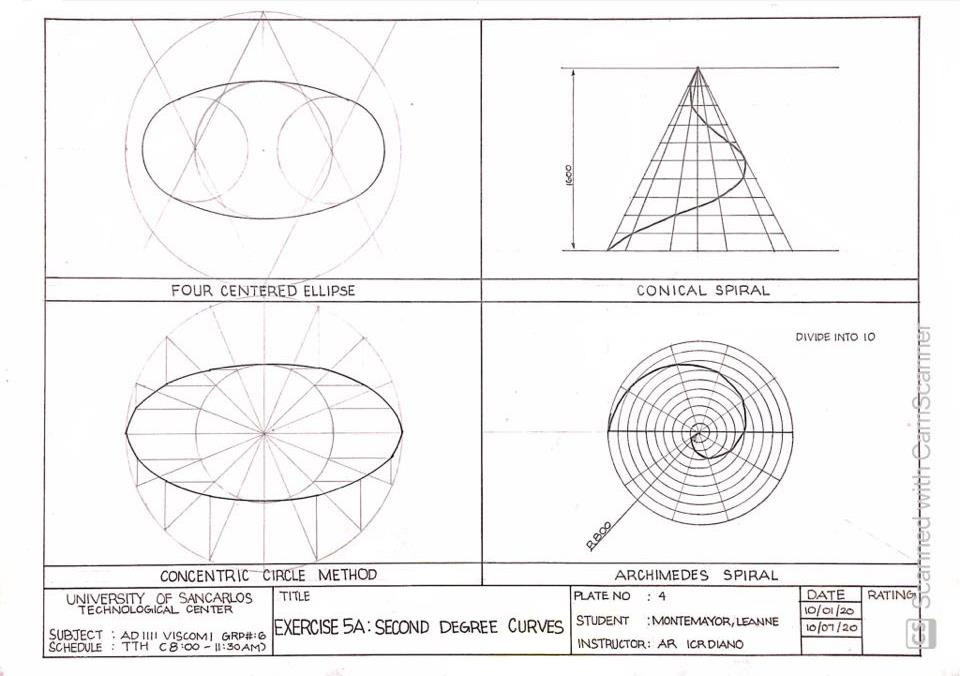 1600
FOUR CENTERED ELLIPSE
CONICAL SPIRAL
DIVIDE INTO 10
R 800
CONCENTRIC CIRCLE METHOD
ARCHIMEDES SPIRAL
UNIVERSITY OF SANCARLOS
TECHNOLOGICAL CENTER
SUBJECT : AD 1111 VISCOM1 GRP#:6
SCHEDULE : TTH (8:00 - 11:30AM)
TITLE
EXERCISE 5A: SECOND DEGREE CURVES
PLATE NO : 4
STUDENT : MONTEMAYOR, LEANNE
INSTRUCTOR: AR ICRDIANO
DATE
10/01/20
10/07/20
RATING
CS Scanned with CamScanner